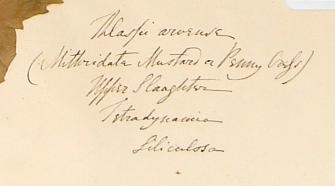 Thlaspi arvense
(Mithridate Mustard or Penny Cress)
Upper Slaughter
Tetradynamia
Siliculosa